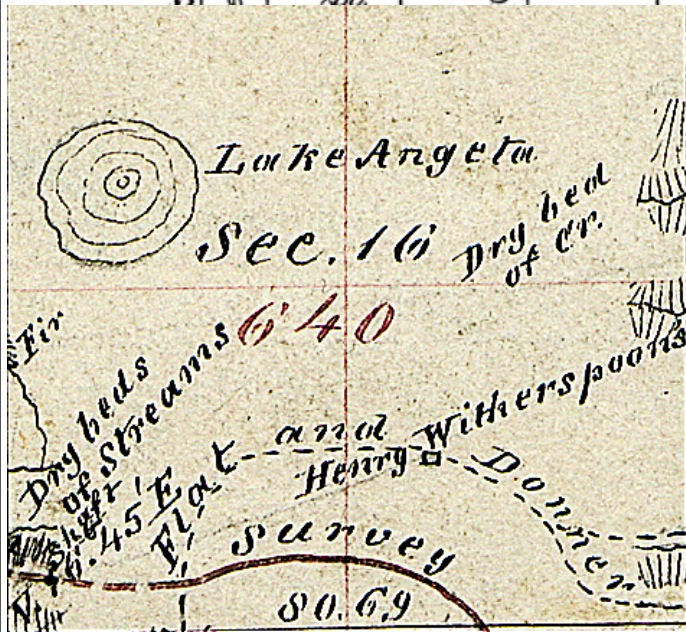 Lake Angela
Sec. 16
Dry bed
of Cr.
640
Fir
Dry beds
of Streams
Shaft
76.45 E
Flat and Donner
Henry Witherspoon's
Survey
80.69